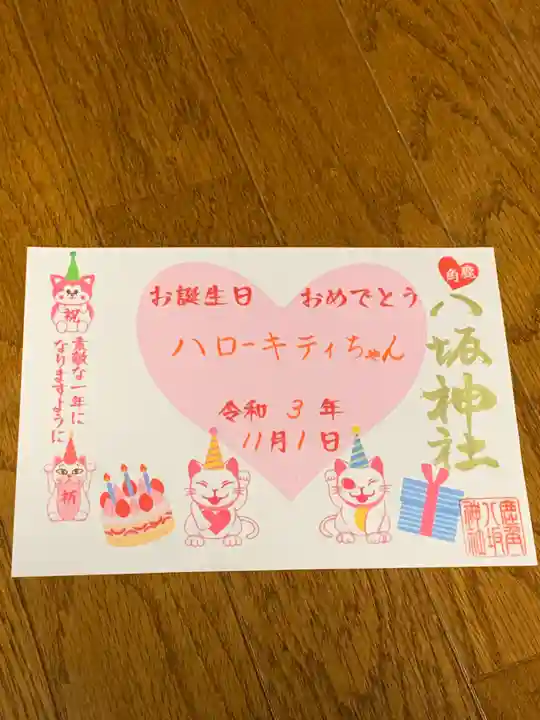 角鹿
八坂神社
お誕生日 おめでとう
ハローキティちゃん
令和 3 年
11月1日
祝
素敵な一年に
なりますように
祈